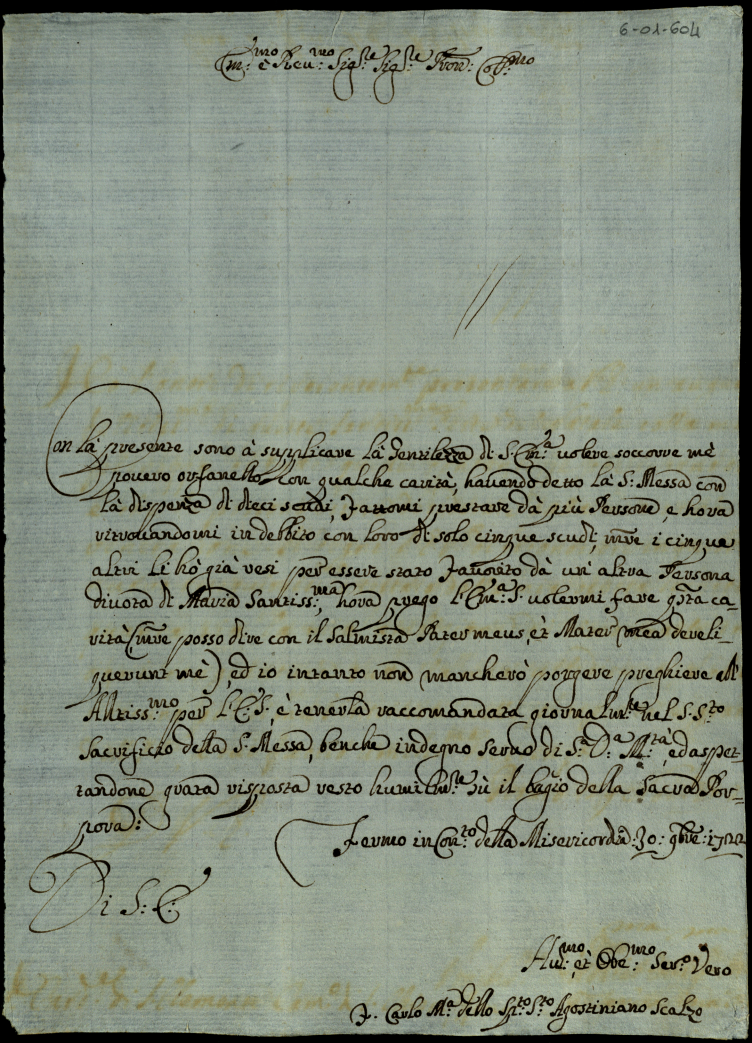 6-01-604
Em:mo e Reu:mo Sig:re Sig:re Pron: Col:mo
Con là presente sono à supplicare là Gentilezza di S. Em:za uolere soccorre mè
pouero orfanello con qualche carità, hauendo detto là S: Messa con
là dispenza di dieci scudi, fattomi prestare dà più Persone, e hora
ritrouandomi in debbito con loro di solo cinque scudi, mre i cinque
altri li hò già resi per essere stato fauorito dà un'altra Persona
diuota di Maria Santiss:ma, hora prego l'Em:a S. uolermi fare qsta ca-
rità (mre posso dire con il Salmista Pater meus, et Mater mea dereli-
querunt mè) ed io intanto non mancherò porgere preghiere all'
Altiss:mo per l'E. S., è tenerla raccomandata giornalmte nel S. Sto
Sacrificio della S. Messa, benche indegno seruo di S.a D.a M.tà, ed aspet-
tandone grata risposta resto humilmte sù il bagio della Sacra Por-
pora:
Fermo in Con:to della Misericordia: 30: 9bre: 1722
Di S: E:
Hu:mo et Obe:mo Ser:o Vero
F. Carlo M:a dello Spto Sto Agostiniano Scalzo